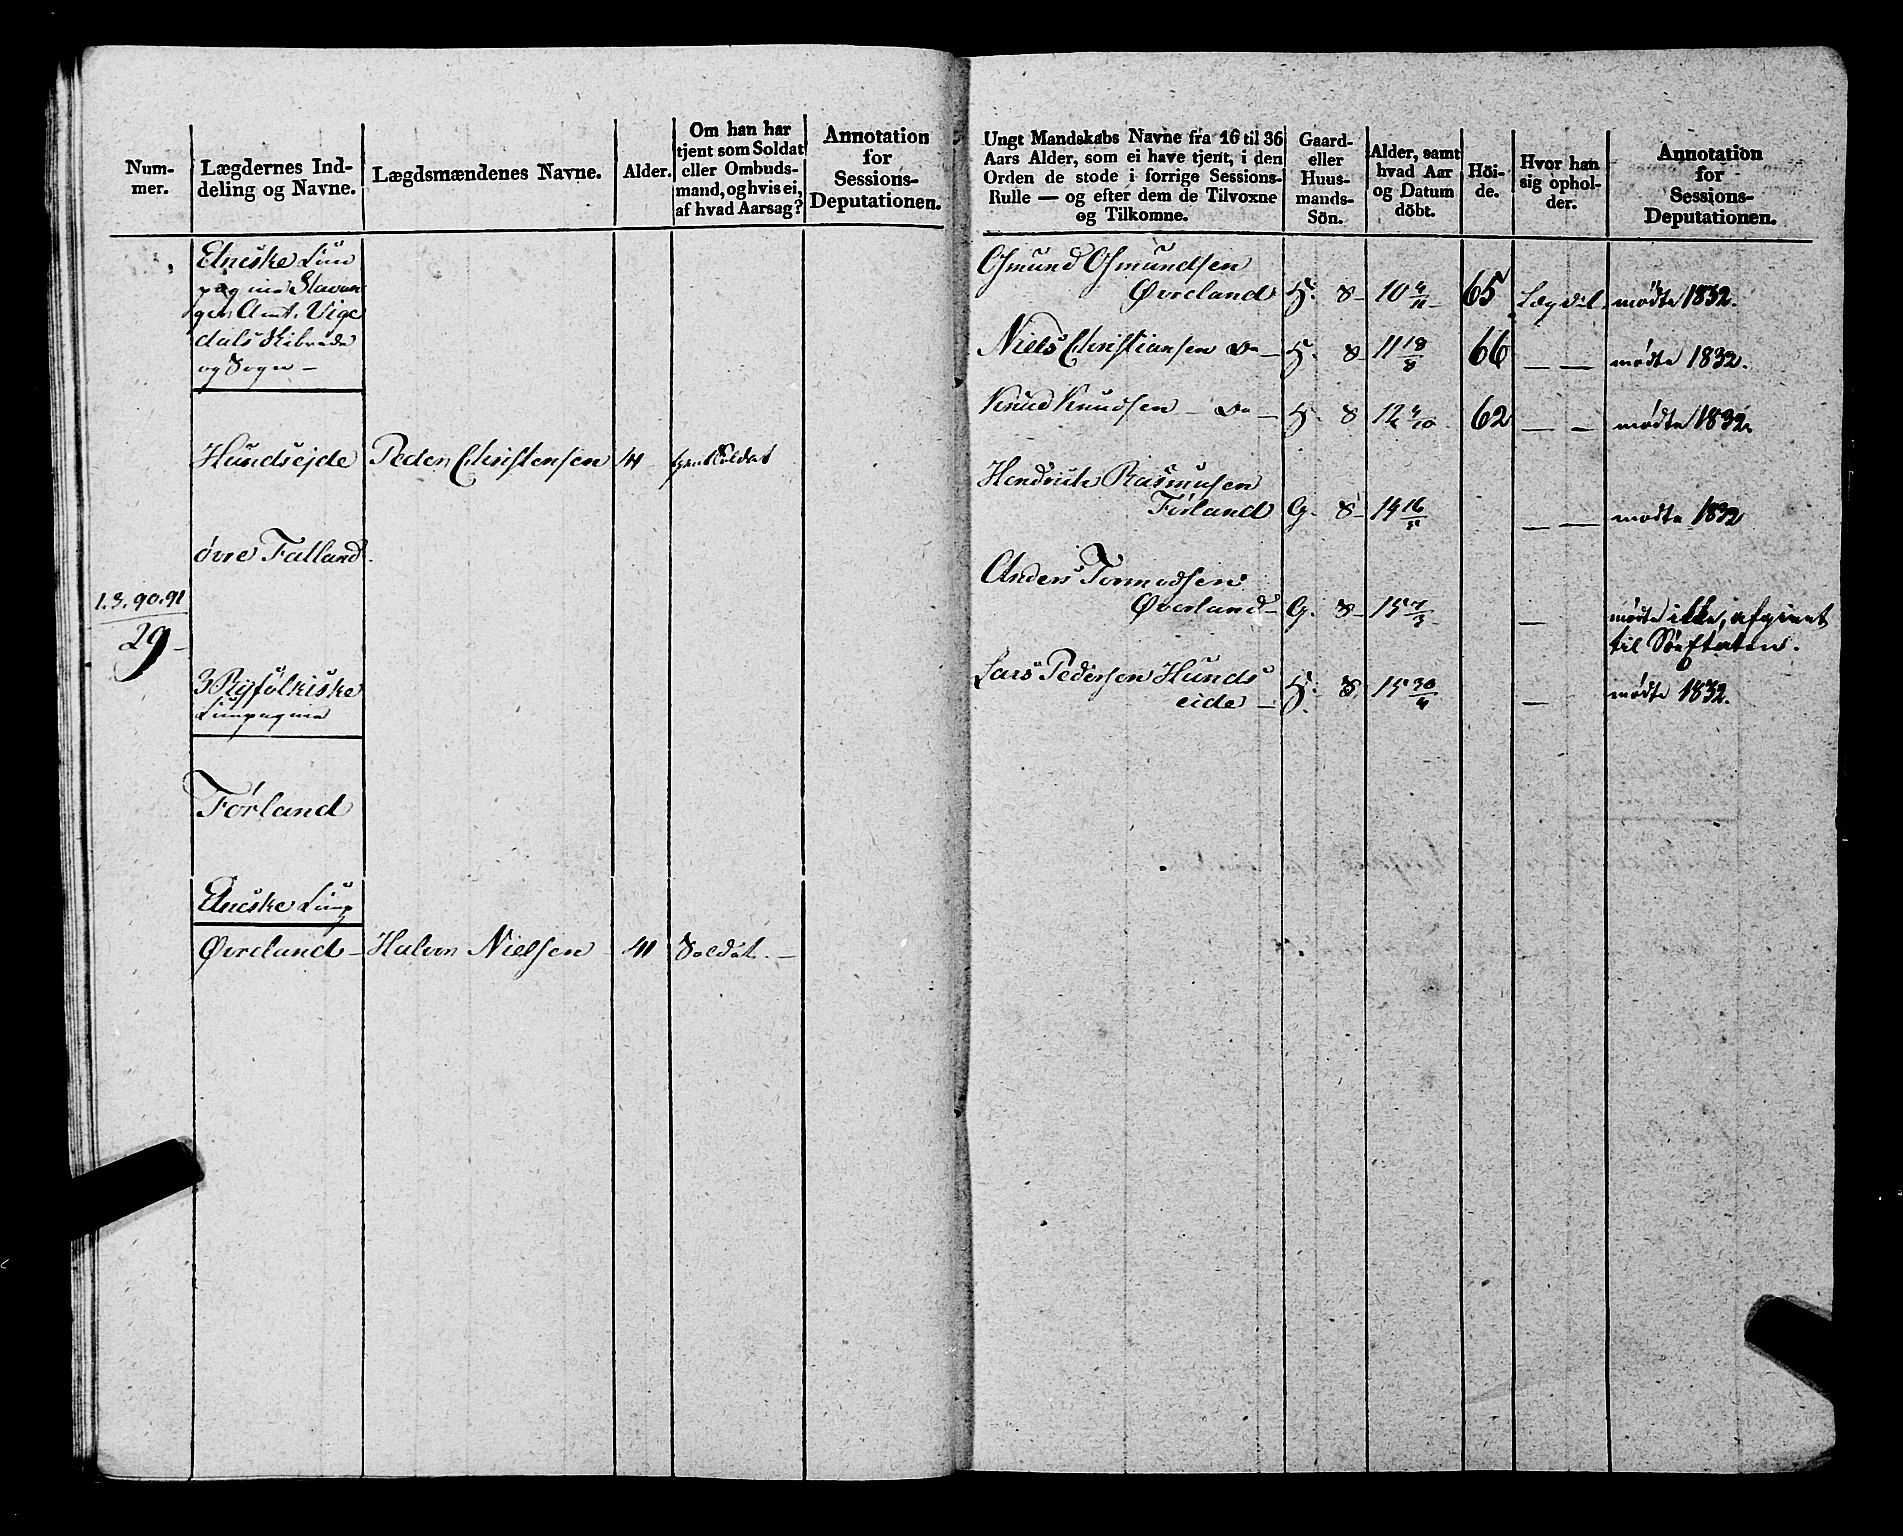 Num-
mer.
Lægdernes Ind-
deling og Navne.
Lægdsmændenes Navne.
Alder.
Om han har
tjent som Soldat
eller Ombuds-
mand, og hvis ei,
af hvad Aarsag?
Annotation
for
Sessions-
Deputationen.
Etneske Com
pagnie Stavan
ger Amt. Vige
dals Skibrede
og Sogn –
Hundseide Peder Christensen 44 – tjent Soldat
øvre Falland.
1.3.90.91
29 –
3 Ryfølkiske
Compagnie
Førland
Etneske Comp
Øvreland – Halvor Nielsen 41 Soldat. –
Ungt Mandskabs Navne fra 16 til 36
Aars Alder, som ei have tjent, i den
Orden de stode i forrige Sessions-
Rulle — og efter dem de Tilvoxne
og Tilkomne.
Gaard-
eller
Huus-
mands-
Sön.
Alder, samt
hvad Aar
og Datum
döbt.
Höi-
de.
Hvor han
sig ophol-
der.
Annotation
for
Sessions-
Deputationen.
Osmund Osmundsen
Øvreland H. S – 10 4/11 – 65 Lægdet. mødte 1832.
Niels Christiansen Do – H. S – 11 18/8 66 — — mødte 1832.
Knud Knudsen – Do – H. S 12 4/10 62 — – mødte 1832.
Hendrich Rasmusen
Førland G. S – 14 16/5 — — mødte 1832
Anders Tormodsen
Øvreland – G. S – 15 7/3 — mødte ikke, afgivet
til Søe Etaten.
Lars Pedersen Hunds
eide – H. S 15 30/4 — mødte 1832.